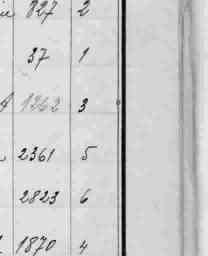 827 2
37 1
1262 3
2361 5
2823 6
1870 4